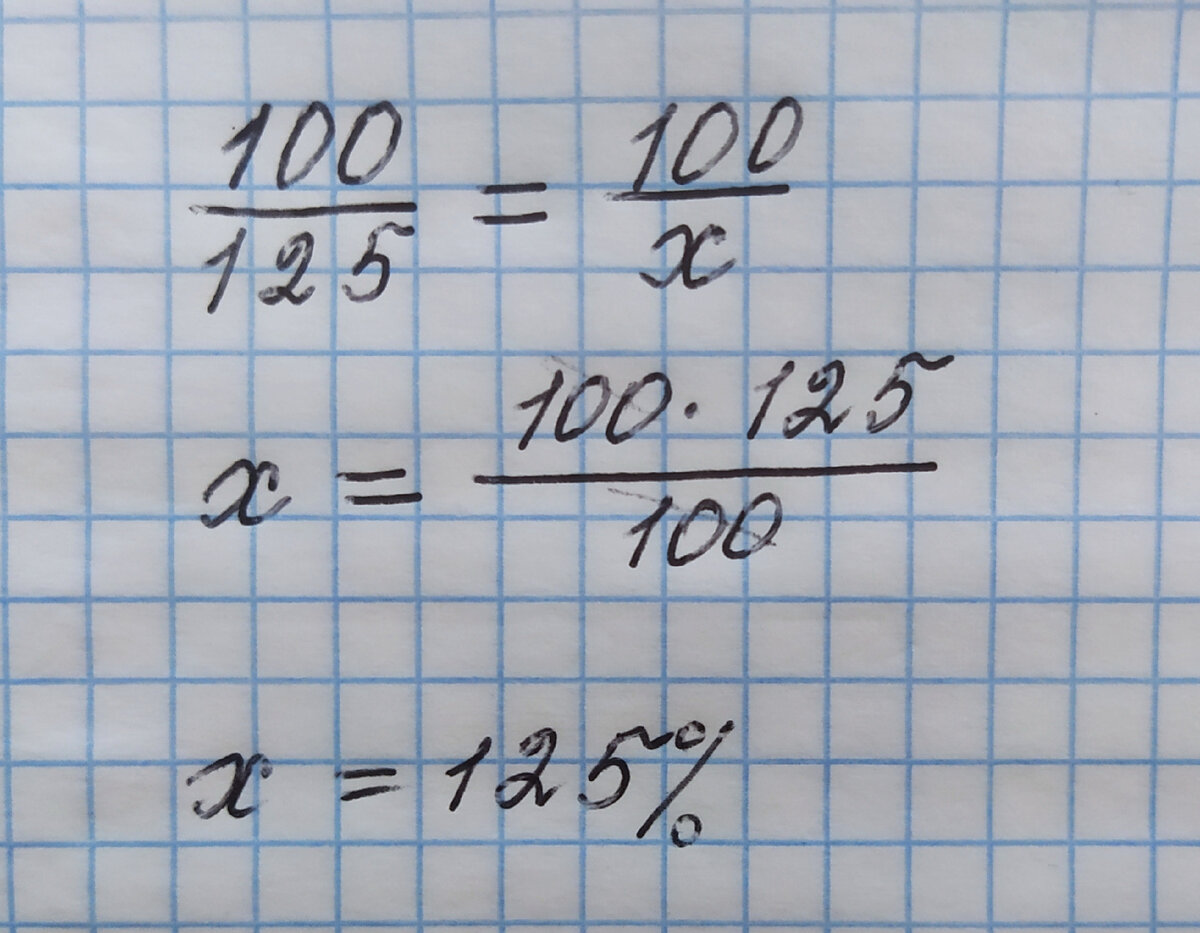 100/125 = 100/x
x = 100 · 125/100
x = 125%